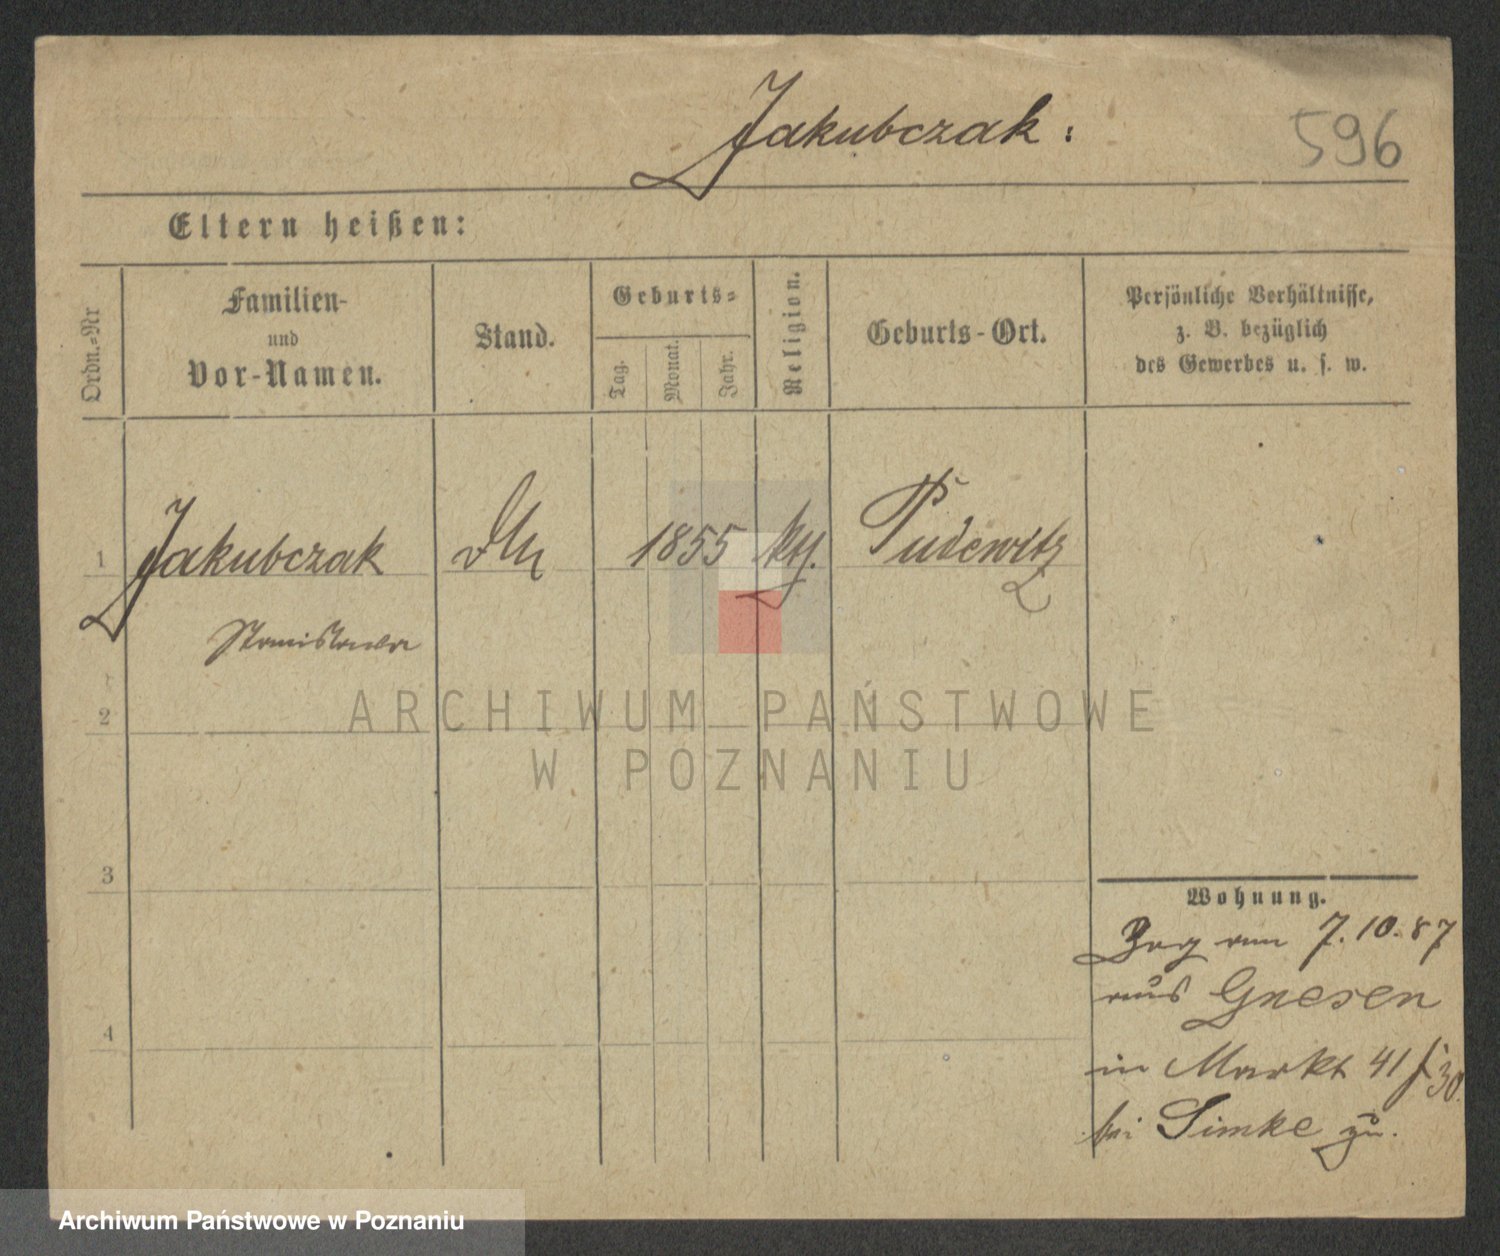 Jakubczak:
596
Eltern heißen:
Ordn.-Nr
Familien-
und
Vor-Namen.
Stand.
Geburts-
Tag.
Monat.
Jahr.
Religion.
Geburts-Ort.
Persönliche Verhältnisse,
z. B. bezüglich
des Gewerbes u. s. w.
1 Jakubczak 1855 kth. Pudewitz
Stanislawa
2
3
4
Wohnung.
Zog am 7.10.87
aus Gnesen
in Markt 41
bei Simke zu.
ARCHIWUM PAŃSTWOWE
W POZNANIU
Archiwum Państwowe w Poznaniu